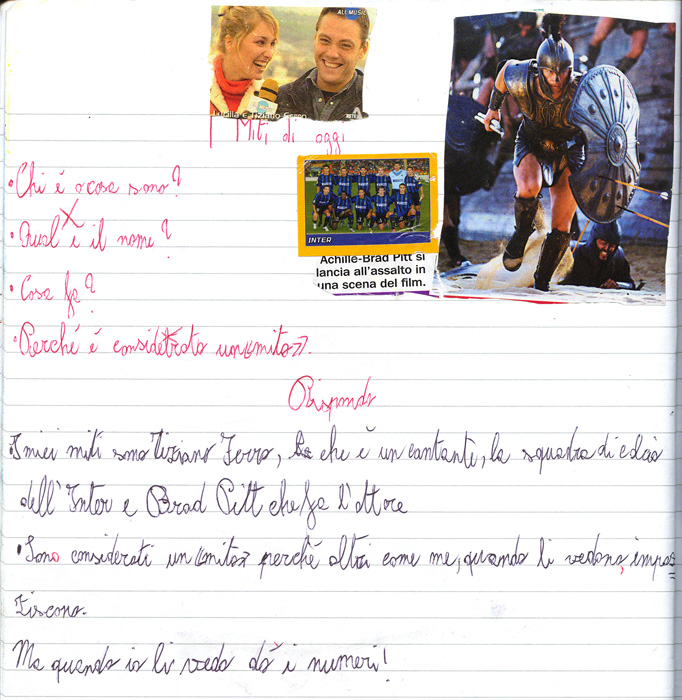 ALL MUSIC
Lucilla e Tiziano Ferro
I Miti di oggi
•Chi è o cosa sono?
•Qual è il nome?
INTER
Achille-Brad Pitt si
lancia all'assalto in
una scena del film.
•Cosa fa?
•Perché è considerato un «mito».
Rispondo
I miei miti sono Tiziano Ferro, che è un cantante, la squadra di calcio
dell'Inter e Brad Pitt che fa l'attore
•Sono considerati un «mito» perché altri come me, quando li vedono, impaz
ziscono.
Ma quando io li vedo dò i numeri!